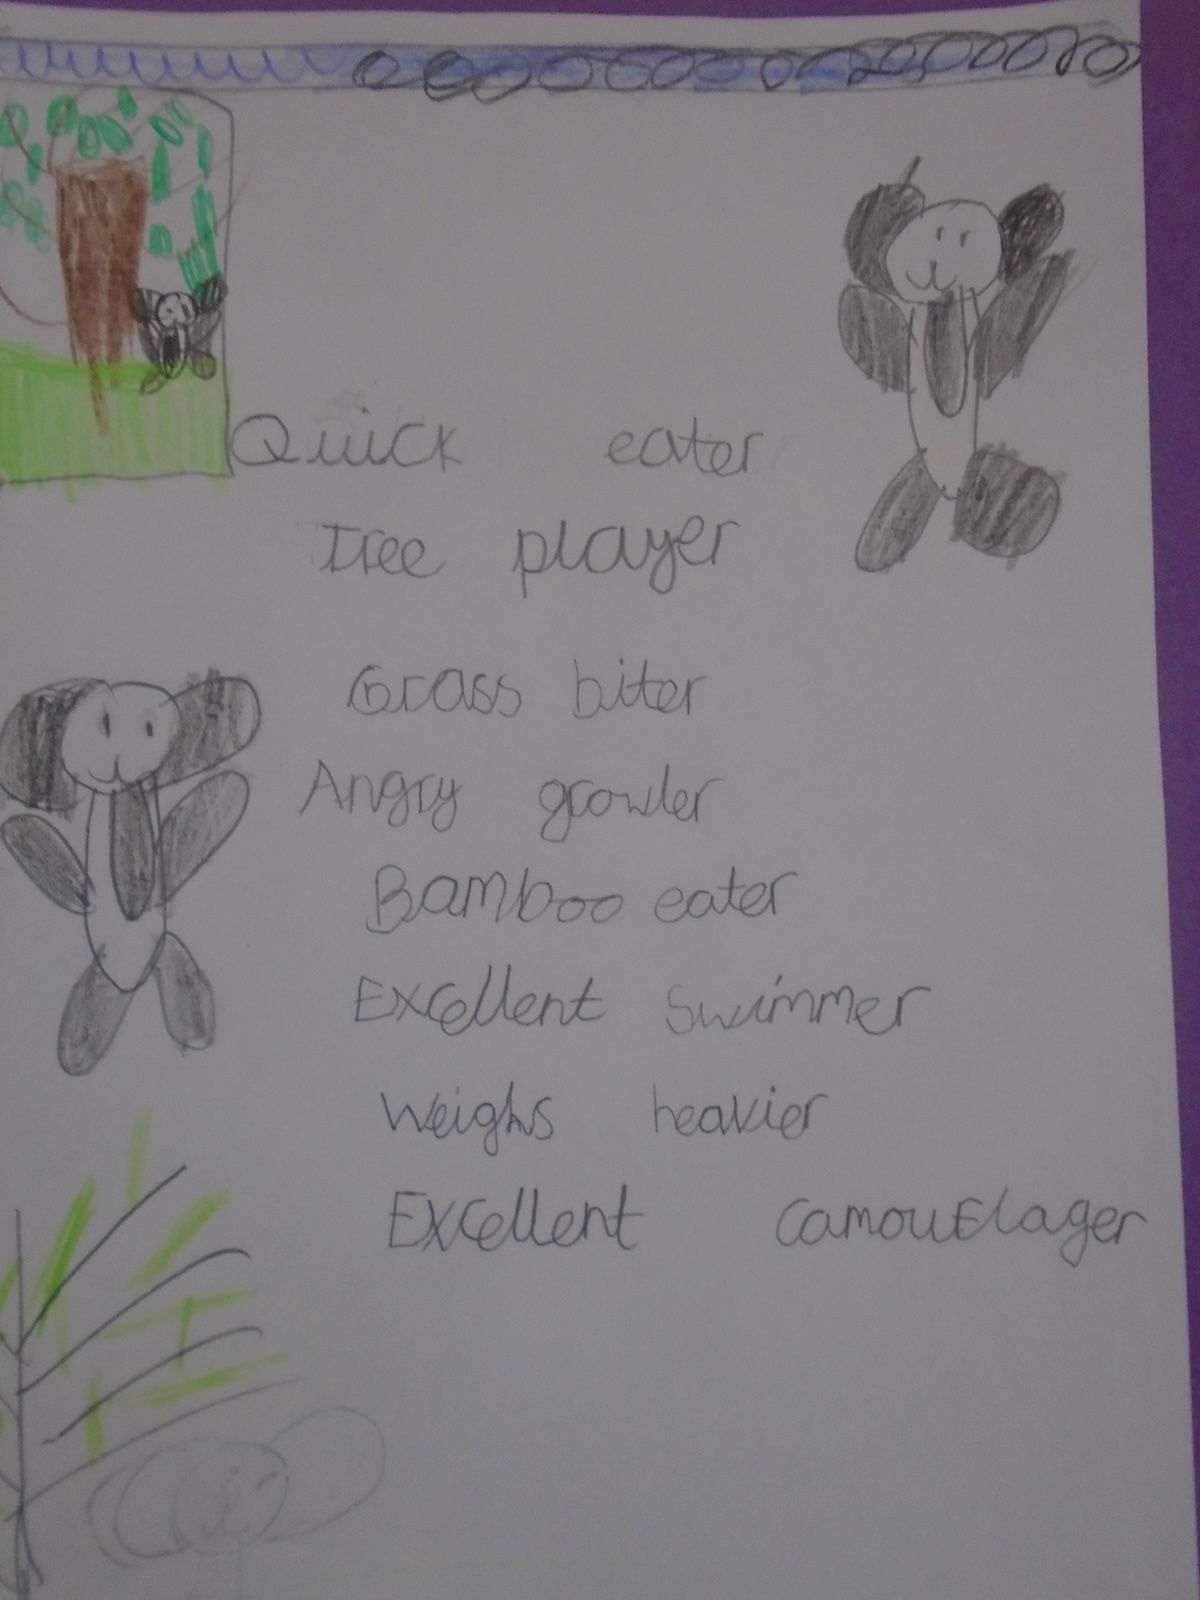 Quick eater
Tree player
Grass biter
Angry growler
Bamboo eater
Excellent swimmer
Weighs heavier
Excellent camouflager